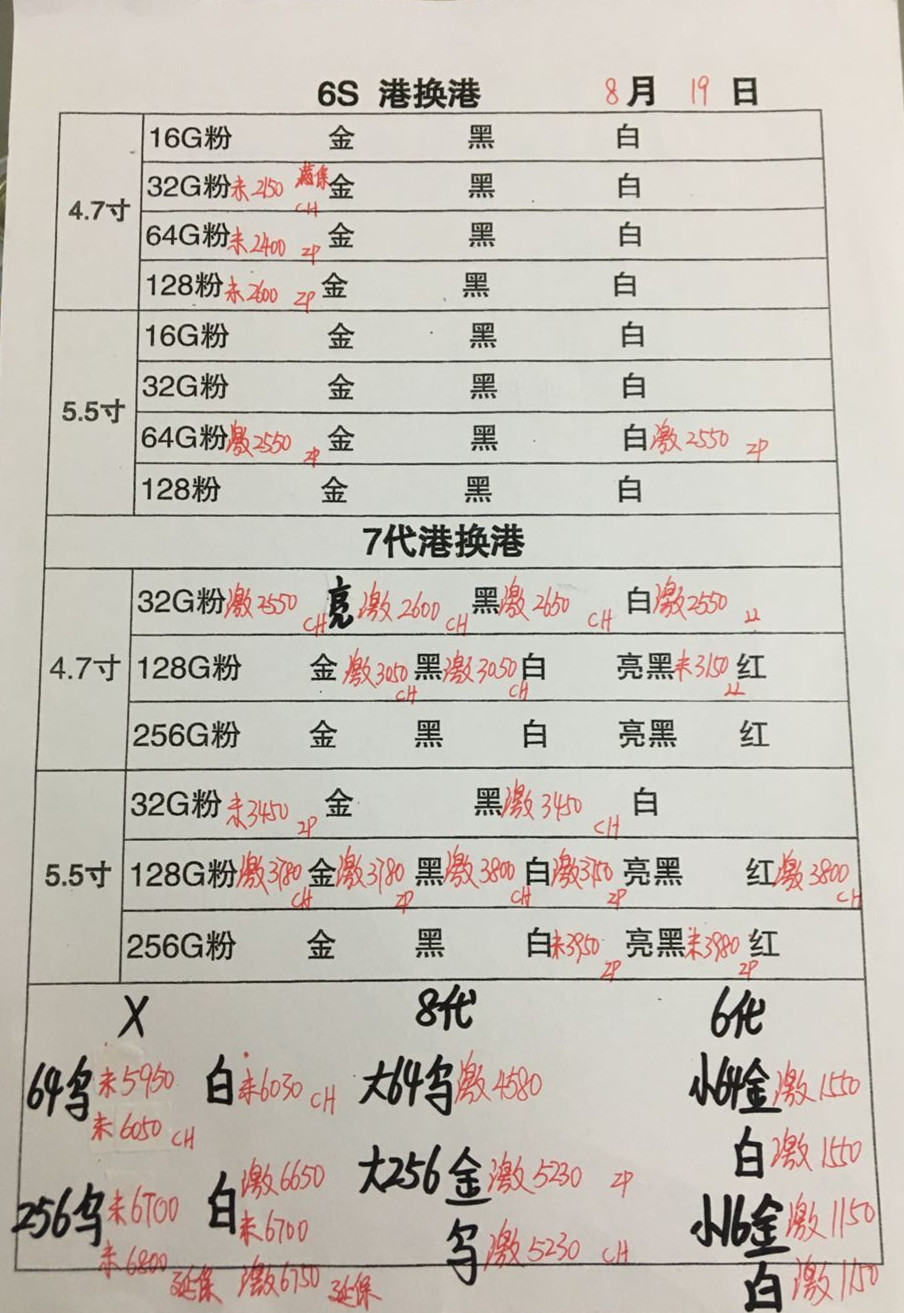 6S 港换港 8月 19日
4.7寸
16G粉 金 黑 白
32G粉未2150 CH 金 黑 白
64G粉未2400 ZP 金 黑 白
128粉未2600 ZP 金 黑 白
5.5寸
16G粉 金 黑 白
32G粉 金 黑 白
64G粉激2550 ZP 金 黑 白激2550 ZP
128粉 金 黑 白
7代港换港
4.7寸
32G粉激2550 CH 亮 激2600 CH 黑激2650 CH 白激2550
128G粉 金 激3050 CH 黑激3050 CH 白 亮黑未3150 红
256G粉 金 黑 白 亮黑 红
5.5寸
32G粉 未3450 ZP 金 黑激3450 CH 白
128G粉激3780 CH 金激3780 ZP 黑激3800 CH 白激 ZP 亮黑 红激3800 CH
256G粉 金 黑 白未3950 ZP 亮黑未3980 ZP 红
X 8代 6代
64乌未5950 白未6030 CH 大64乌激4580 小64金激1550
未6050 CH 白激1550
256乌未6700 白激6650 未6700 大256金激5230 ZP 小16金激1150
未6800 延保 激6750 延保 乌激5230 CH 白激1150